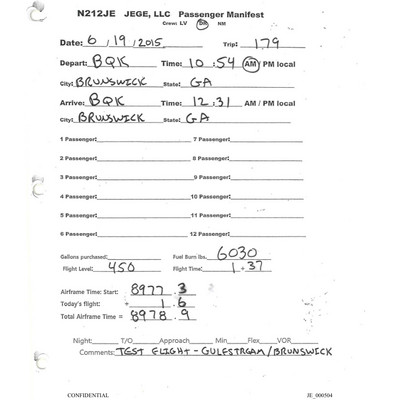 N212JE JEGE, LLC Passenger Manifest
Crew: LV DR NM
Date: 6 / 19 / 2015 Trip: 179
Depart: BQK Time: 10:54 AM / PM local
City: BRUNSWICK State: GA
Arrive: BQK Time: 12:31 AM / PM local
City: BRUNSWICK State: GA
1 Passenger: 7 Passenger:
2 Passenger: 8 Passenger:
3 Passenger: 9 Passenger:
4 Passenger: 10 Passenger:
5 Passenger: 11 Passenger:
6 Passenger: 12 Passenger:
Gallons purchased: Fuel Burn lbs. 6030
Flight Level: 450 Flight Time: 1 + 37
Airframe Time: Start: 8977.3
Today's flight: + 1.6
Total Airframe Time = 8978.9
Night: T/O Approach Min Flex VOR
Comments: TEST FLIGHT - GULFSTREAM/BRUNSWICK
CONFIDENTIAL JE_000504